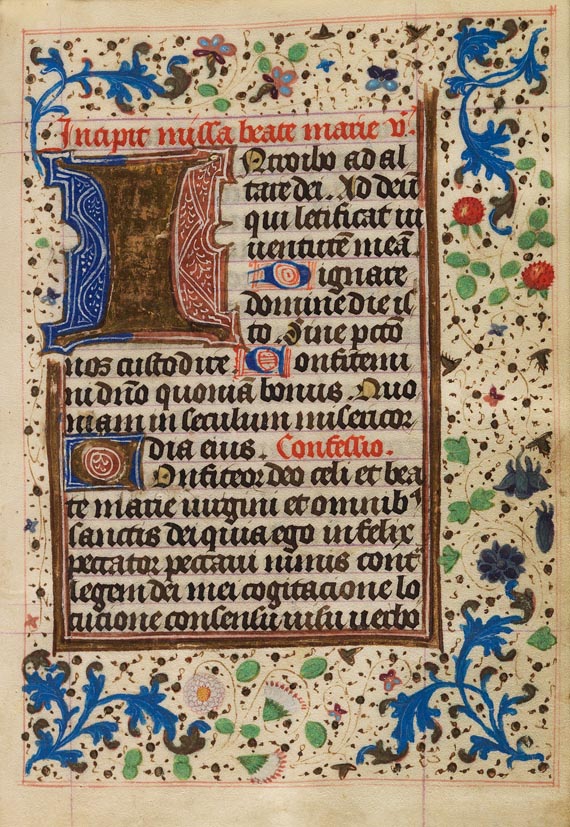 Incipit missa beate marie v.
Introibo ad al
tare dei. Ad deū
qui letificat iu
uentutē meā
Dignare
domine die is
to. Sine pctō
nos custodire. Confitemi
ni dño quoniā bonus. Quo
niam in seculum misericor
dia eius. Confessio.
Confiteor deo celi et bea
te marie uirgini et omnib
sanctis dei quia ego infelix
peccator peccaui nimis cont
legem dei mei cogitacione lo
cucione consensu uisu uerbo